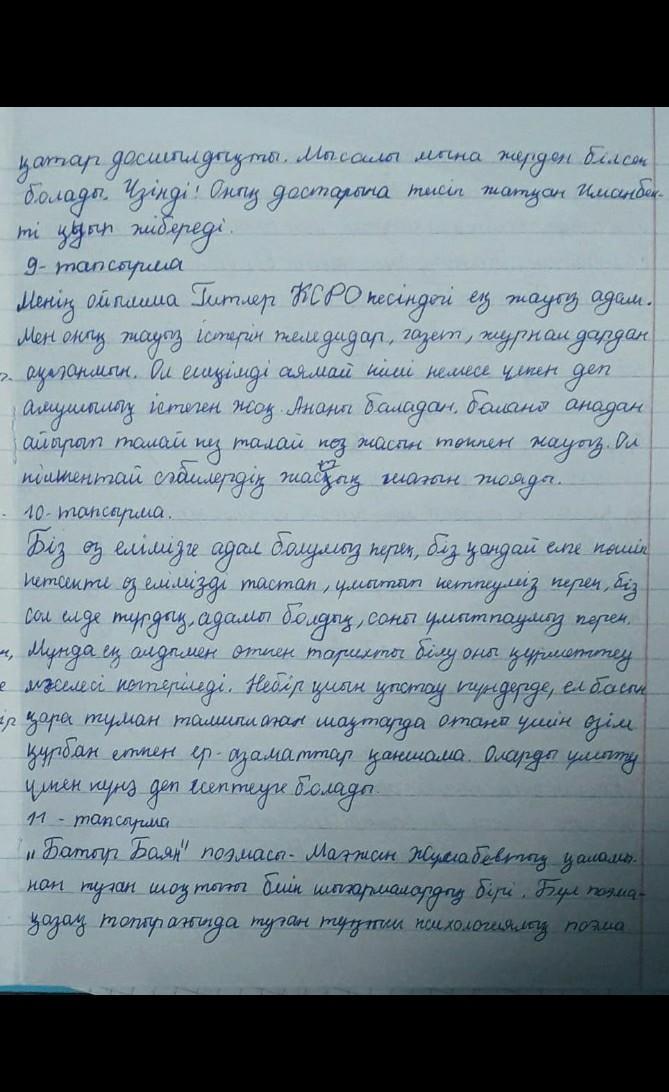 қатар досшылдықты. Мысалы мына жерден білсең
болады. Үзінді! Оның достарына тиісіп жатқан Иманбек-
ті қуып жібереді.
9-тапсырма
Менің ойымша Гитлер КСРО кесіндегі ең жауыз адам.
Мен оның жауыз істерін теледидар, газет, журналдардан
оқығанмын. Ол ешкімді аямай кіші немесе үлкен деп
алушылық істеген жоқ. Ананы баладан, баланы анадан
айырып талай көз талай көз жасын төккен жауыз. Ол
кішкентай сәбилердің жастық шағын жояды.
10-тапсырма.
Біз өз елімізге адал болумыз керек, біз қандай елге көшіп
кетсекте өз елімізді тастап, ұмытып кетпеуміз керек, біз
сол елде тұрдық, адамы болдық, соны ұмытпаумыз керек.
Мұнда ең алдымен өткен тарихты білу оны құрметтеу
мәселесі көтеріледі. Небір қиын қыстау күндерде, ел басын
қара тұман тамшылаған шақтарда отаны үшін өзін
құрбан еткен ер-азаматтар қаншама. Оларды ұмыту
үлкен күнә деп есептеуге болады.
11-тапсырма
„Батыр Баян" поэмасы- Мағжан Жұмабевтың қаламы-
нан туған шоқтығы биік шығармалардың бірі. Бұл поэма-
қазақ топырағында туған тұңғыш психологиялық поэма